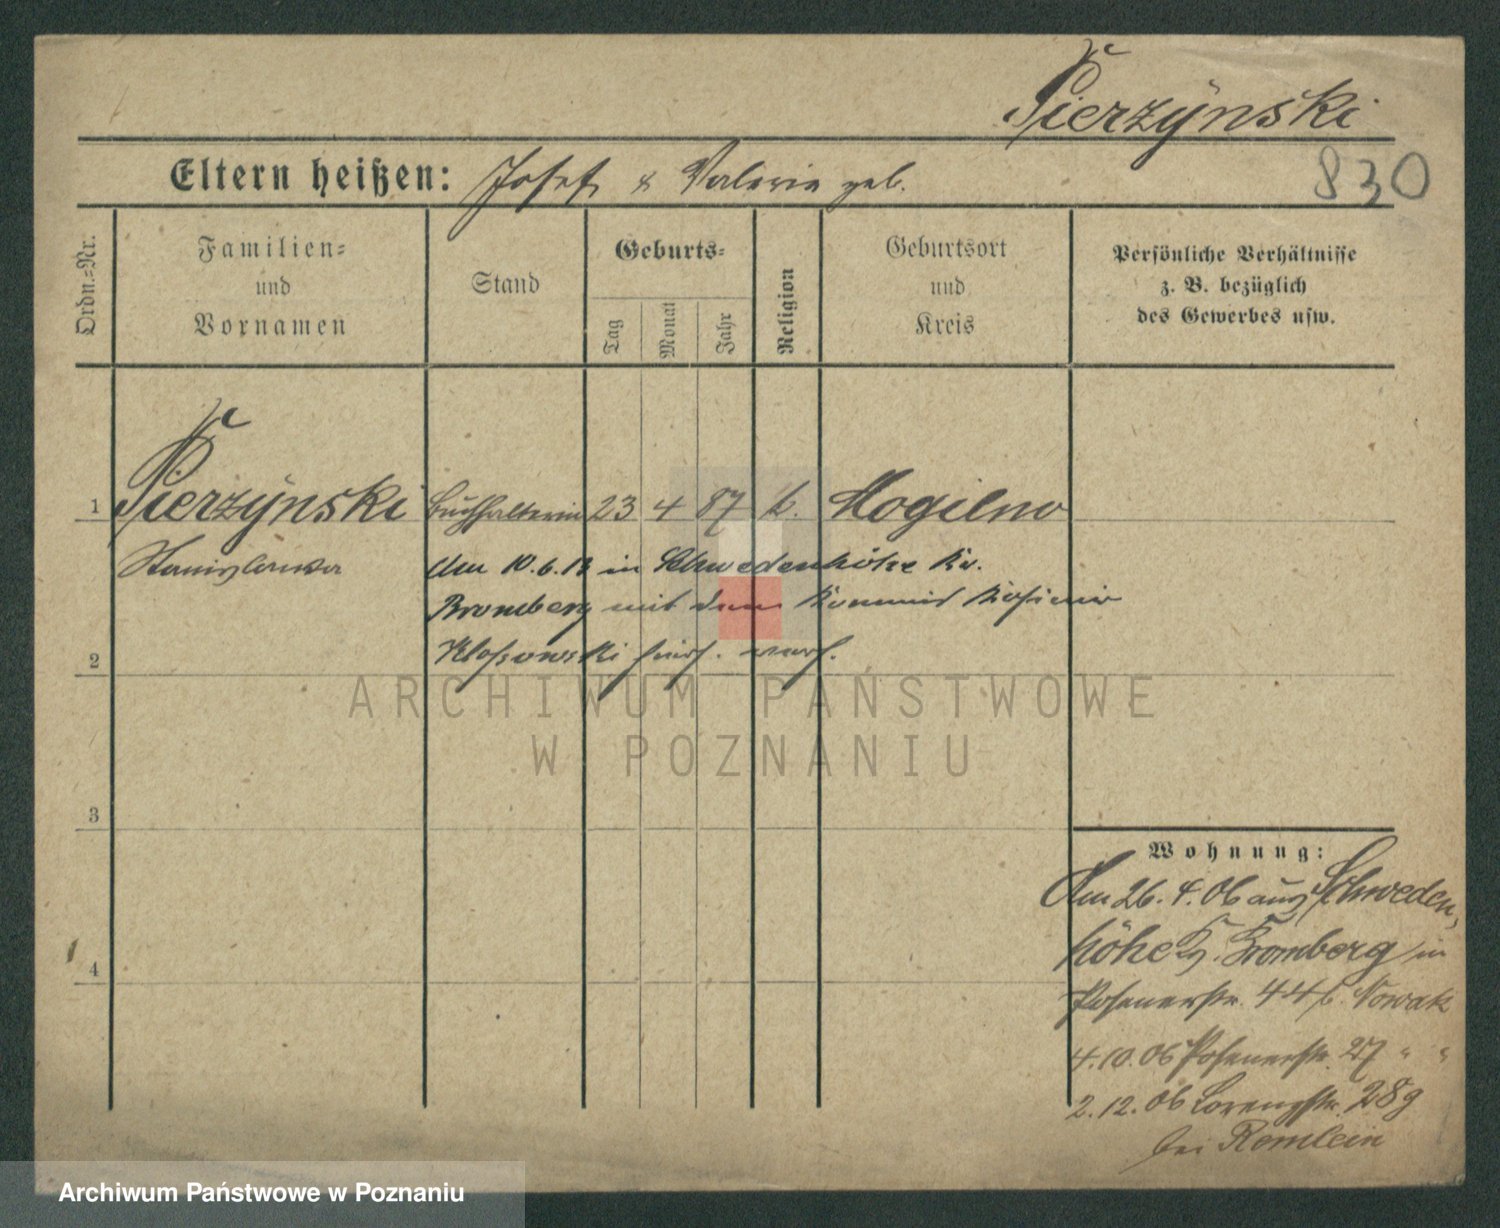 Pierzynski
Eltern heißen: Josef & Valeria geb.
830
Ordn.=Nr.
Familien=
und
Vornamen
Stand
Geburts=
Tag
Monat
Jahr
Religion
Geburtsort
und
Kreis
Persönliche Verhältnisse
z. B. bezüglich
des Gewerbes usw.
1 Pierzynski Buchhalterin 23 4 87 k. Mogilno
Stanislawa
Am 10.6.13 in Schwedenhöhe Kr.
Bromberg mit dem Kommis Kasimir
2 Klossowski
ARCHIWUM PAŃSTWOWE
W POZNANIU
3
Wohnung:
Am 26.4.06 aus Schweden-
höhe Kr. Bromberg in
4
Posenerstr. 44 b. Nowak
4.10.06 Posenerstr. 27 " "
2.12.06 Lorenzstr. 28g
bei Remlein
Archiwum Państwowe w Poznaniu